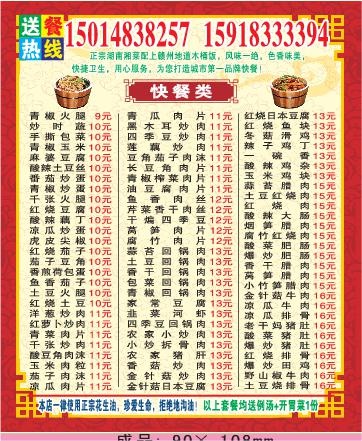 送餐热线 15014838257 15918333394
正宗湖南湘菜配上赣州地道木桶饭，风味一绝，色香味美，
快捷卫生，用心服务，为您打造城市第一品牌快餐！
快餐类
青椒火腿 9元
炒时蔬 10元
手撕包菜 10元
青椒玉米 10元
麻婆豆腐 10元
酸辣土豆丝 10元
番茄炒蛋 10元
青椒炒蛋 10元
千张火腿 10元
红烧豆腐 10元
酸辣藕丁 10元
凉瓜炒蛋 10元
虎皮尖椒 10元
红烧茄子 10元
茄子豆角 10元
香煎荷包蛋 10元
鱼香茄子 10元
土豆火腿 10元
红烧土豆 10元
洋葱炒肉 11元
红萝卜炒肉 11元
千张肉片 11元
酸豆角肉沫 11元
玉米肉粒 11元
茄子肉沫 11元
凉瓜肉片 11元
青瓜肉片 11元
黑木耳炒肉 11元
四季豆炒肉 11元
莲藕炒肉 11元
豆角茄子肉沫 11元
长豆角肉片 11元
青椒榨菜肉片 11元
油豆腐肉片 11元
鱼香肉丝 12元
芹菜香干肉丝 12元
干煸四季豆 12元
莴笋肉片 12元
腐竹肉片 12元
蒜苔回锅肉 13元
土豆回锅肉 13元
香干回锅肉 13元
包菜回锅肉 13元
青椒回锅肉 13元
家常豆腐 13元
韭菜河虾 13元
四季豆回锅肉 13元
农家小炒肉 13元
小炒拆骨肉 13元
农家猪肝 13元
香菇炒肉 13元
金针菇日本豆腐 13元
红烧日本豆腐 13元
红烧鱼块 13元
冬菇滑鸡 13元
辣子鸡丁 13元
一碗香 13元
酸辣鸡杂 13元
玉米鸡块 13元
蒜苔腊肉 15元
土豆红烧肉 15元
红烧肉 15元
酸辣大肠 15元
烟笋腊肉 15元
腐竹红烧肉 15元
酸菜肥肠 15元
爆炒肥肠 15元
香干腊肉 15元
莴笋腊肉 15元
小竹笋腊肉 15元
金针菇牛肉 16元
凉瓜牛肉 16元
凉瓜排骨 16元
老干妈猪肚 16元
酸菜猪肚 16元
爆炒猪肚 16元
红烧排骨 16元
爆炒田鸡 16元
野山椒牛肉 16元
土豆烧排骨 16元
本店一律使用正宗花生油，珍爱生命，拒绝地沟油！ 以上套餐均送例汤+开胃菜1份
成品：90× 108mm